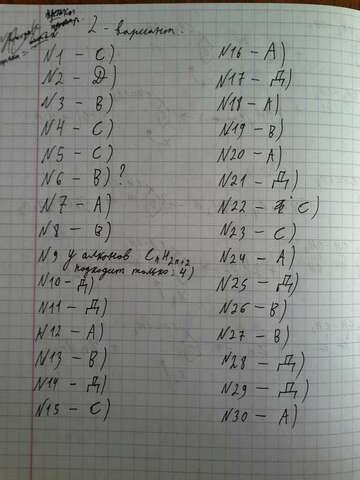 2 - вариант.
N1 - C)
N2 - D)
N3 - B)
N4 - C)
N5 - C)
N6 - B) ?
N7 - A)
N8 - B)
N9 у алканов CnH2n+2
подходит только: 4)
N10 - Д)
N11 - Д)
N12 - A)
N13 - B)
N14 - Д)
N15 - C)
N16 - A)
N17 - Д)
N18 - A)
N19 - B)
N20 - A)
N21 - Д)
N22 - C)
N23 - C)
N24 - A)
N25 - Д)
N26 - B)
N27 - B)
N28 - Д)
N29 - Д)
N30 - A)